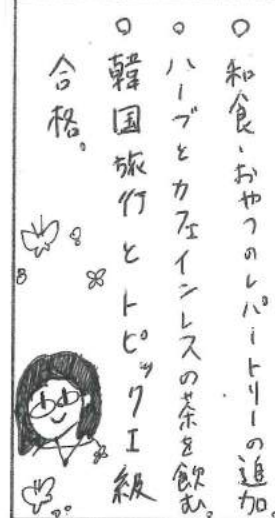 ○和食・おやつのレパートリーの追加。
○ハーブとカフェインレスの茶を飲む。
○韓国旅行とトピックI級
合格。